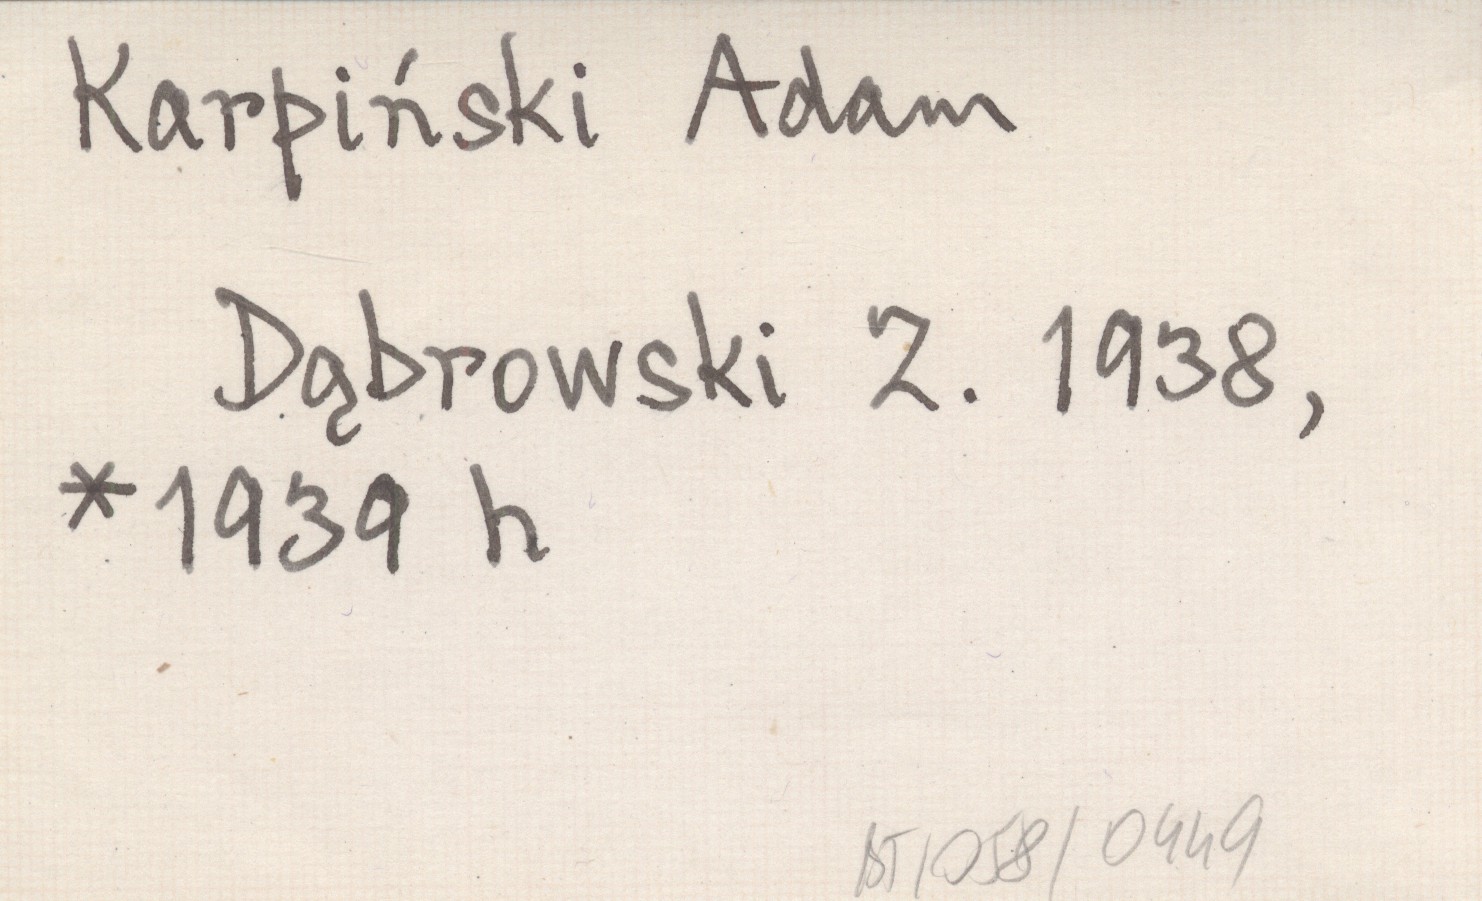 Karpiński Adam
Dąbrowski Z. 1938,
*1939 h
BT/058/0449